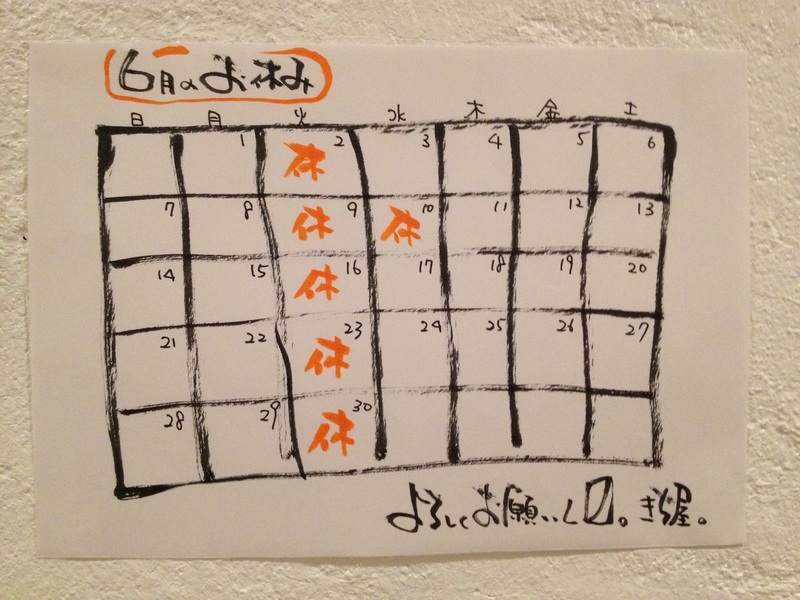 6月のお休み
日 月 火 水 木 金 土
1 休 2 3 4 5 6
7 8 休 9 休 10 11 12 13
14 15 休 16 17 18 19 20
21 22 休 23 24 25 26 27
28 29 休 30
よろしくお願いし〼。